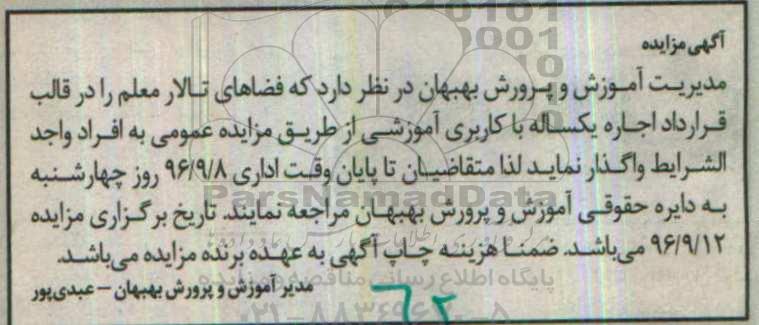 آگهی مزایده
مدیریت آموزش و پرورش بهبهان در نظر دارد که فضاهای تالار معلم را در قالب
قرارداد اجاره یکساله با کاربری آموزشی از طریق مزایده عمومی به افراد واجد
الشرایط واگذار نماید لذا متقاضیان تا پایان وقت اداری ۹۶/۹/۸ روز چهارشنبه
به دایره حقوقی آموزش و پرورش بهبهان مراجعه نمایند. تاریخ برگزاری مزایده
۹۶/۹/۱۲ می‌باشد. ضمنا هزینه چاپ آگهی به عهده برنده مزایده می‌باشد.
مدیر آموزش و پرورش بهبهان – عبدی‌پور
ParsNamadData
پایگاه اطلاع رسانی مناقصه و مزایده
۶۲